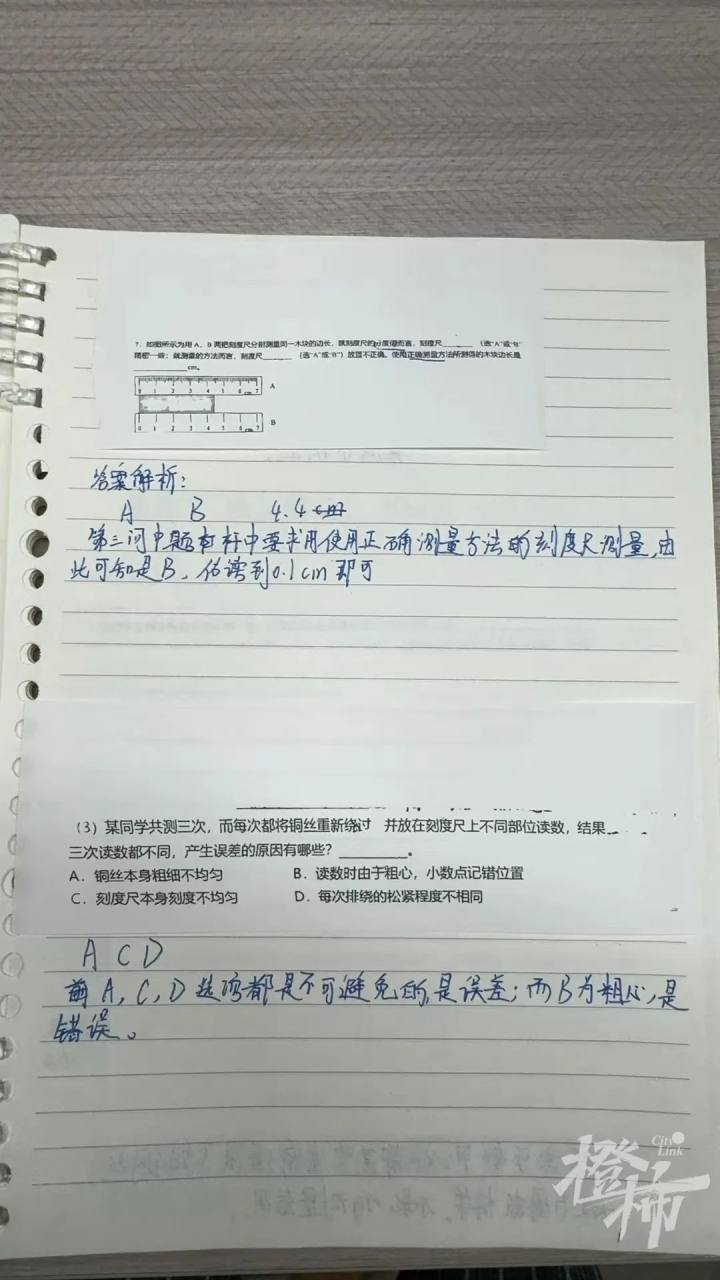 7. 如图所示为用 A、B 两把刻度尺分别测量同一木块的边长，就刻度尺的分度值而言，刻度尺______（选“A”或“B”
精密一些；就测量的方法而言，刻度尺______（选“A”或“B”）放置不正确。使用正确测量方法所测得的木块边长是
______cm。
0 1 2 3 4 5 6 cm 7 A
0 1 2 3 4 5 6 cm 7 B
答案解析：
A B 4.4 cm
第三问中题杆中要求用使用正确测量方法的刻度尺测量，由
此可知是B，估读到0.1cm即可
（3）某同学共测三次，而每次都将铜丝重新绕过 并放在刻度尺上不同部位读数，结果
三次读数都不同，产生误差的原因有哪些？______。
A．铜丝本身粗细不均匀 B．读数时由于粗心，小数点记错位置
C．刻度尺本身刻度不均匀 D．每次排绕的松紧程度不相同
A C D
A，C，D选项都是不可避免的，是误差；而B为粗心，是
错误。
City Link
橙柿